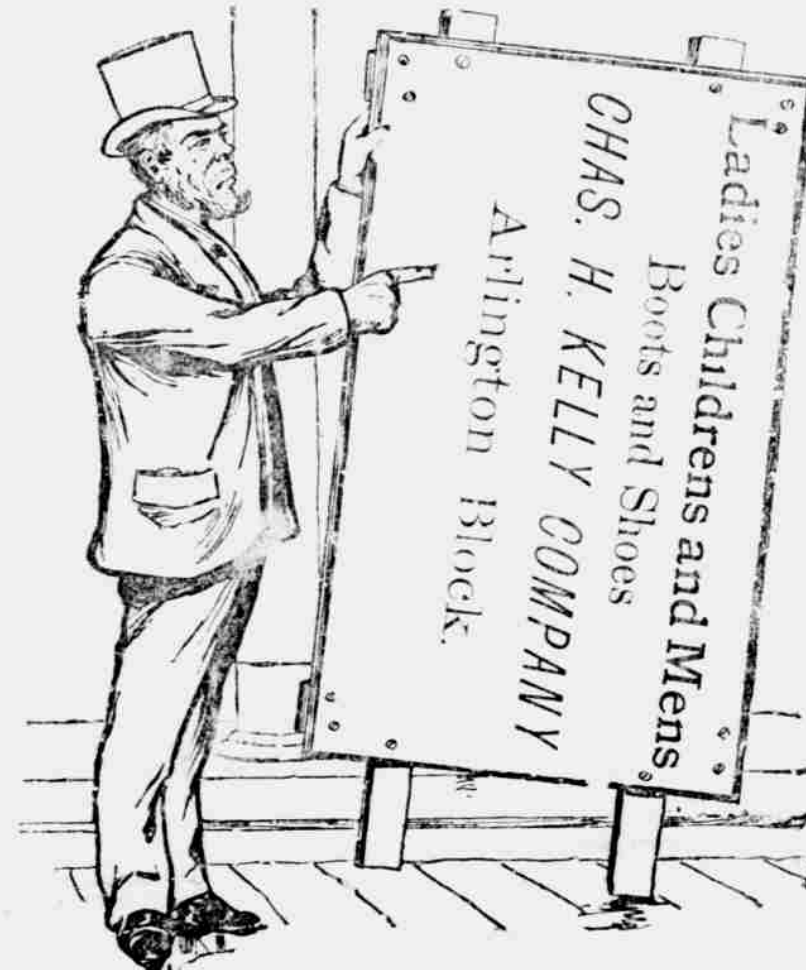 Ladies Childrens and Mens
Boots and Shoes
CHAS. H. KELLY COMPANY
Arlington Block.